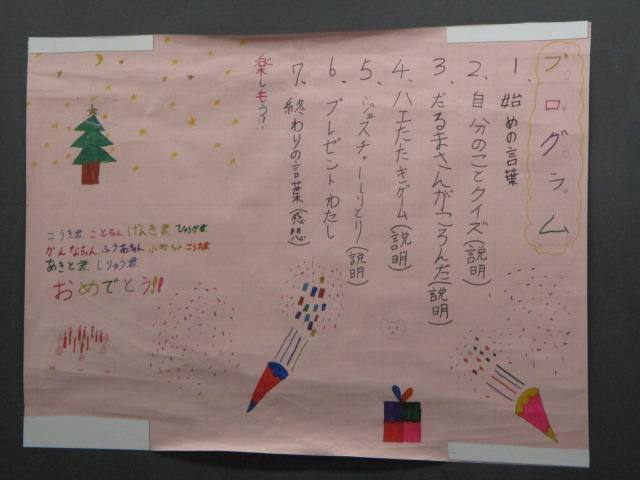 プログラム
1、始めの言葉
2、自分のことクイズ(説明)
3、だるまさんがころんだ(説明)
4、ハエたたきゲーム(説明)
5、ジェスチャーしりとり(説明)
6、プレゼントわたし
7、終わりの言葉(感想)
楽しもう!!
こうき君 ことちゃん げんき君 ひゅうが君
かんなちゃん ふうあちゃん こうた君
あきと君 しりゅう君
おめでとう!!